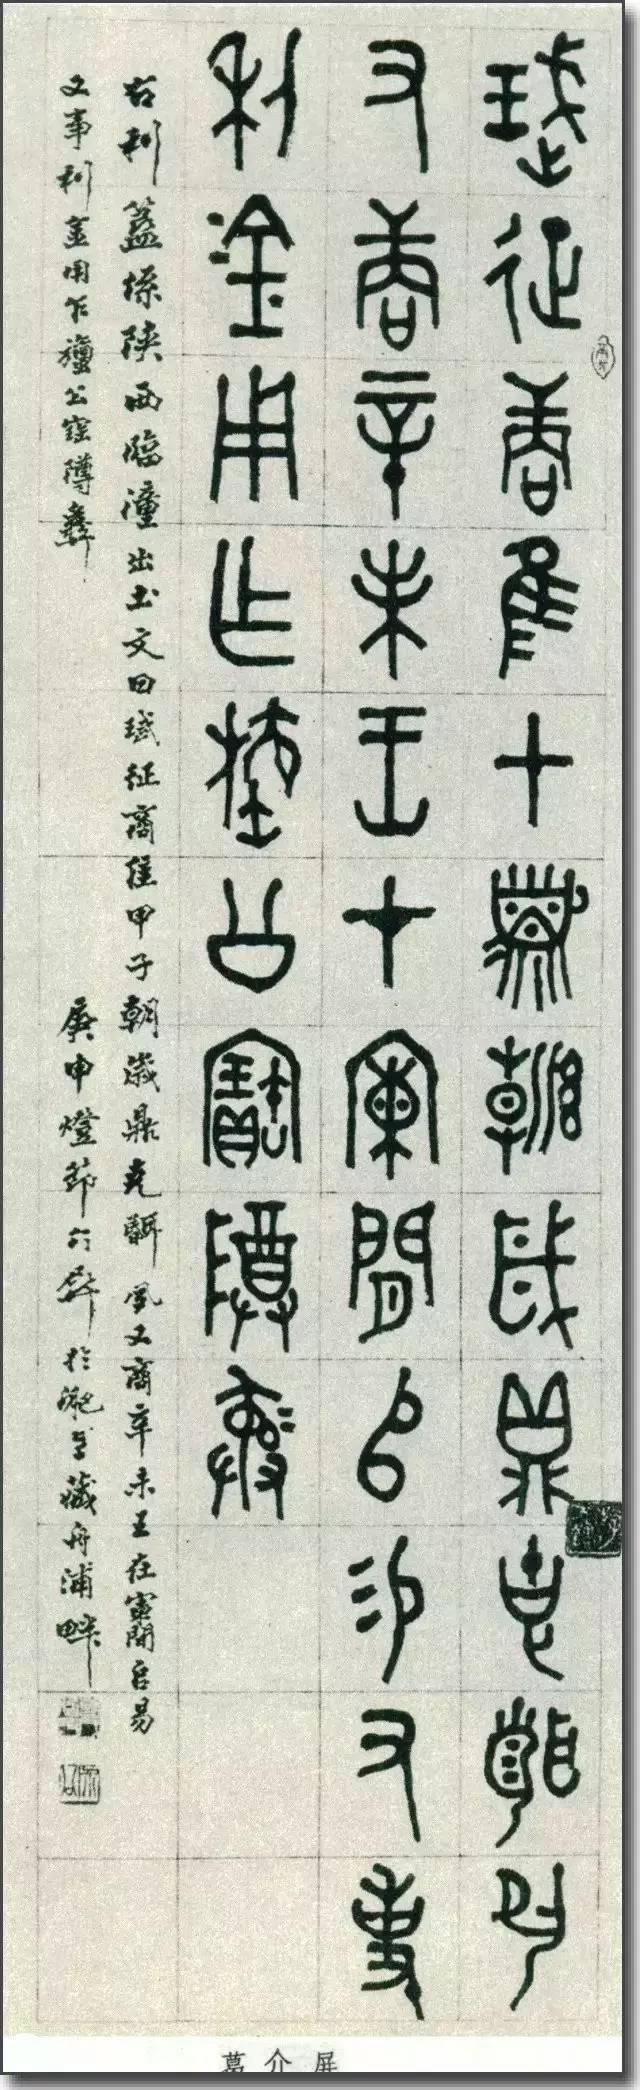 珷征商隹甲子朝歲鼎克聞夙
又商辛未王才𫵖𫔭𠂤易又事
利金用乍𣄰公寶䵼彝
右利簋係陝西臨潼出土文曰珷征商隹甲子朝歲鼎克聞夙又商辛未王在𫵖𠂤易
又事利金用乍公寶䵼彝
庚申燈節介屏於藏舟浦畔
葛介屏